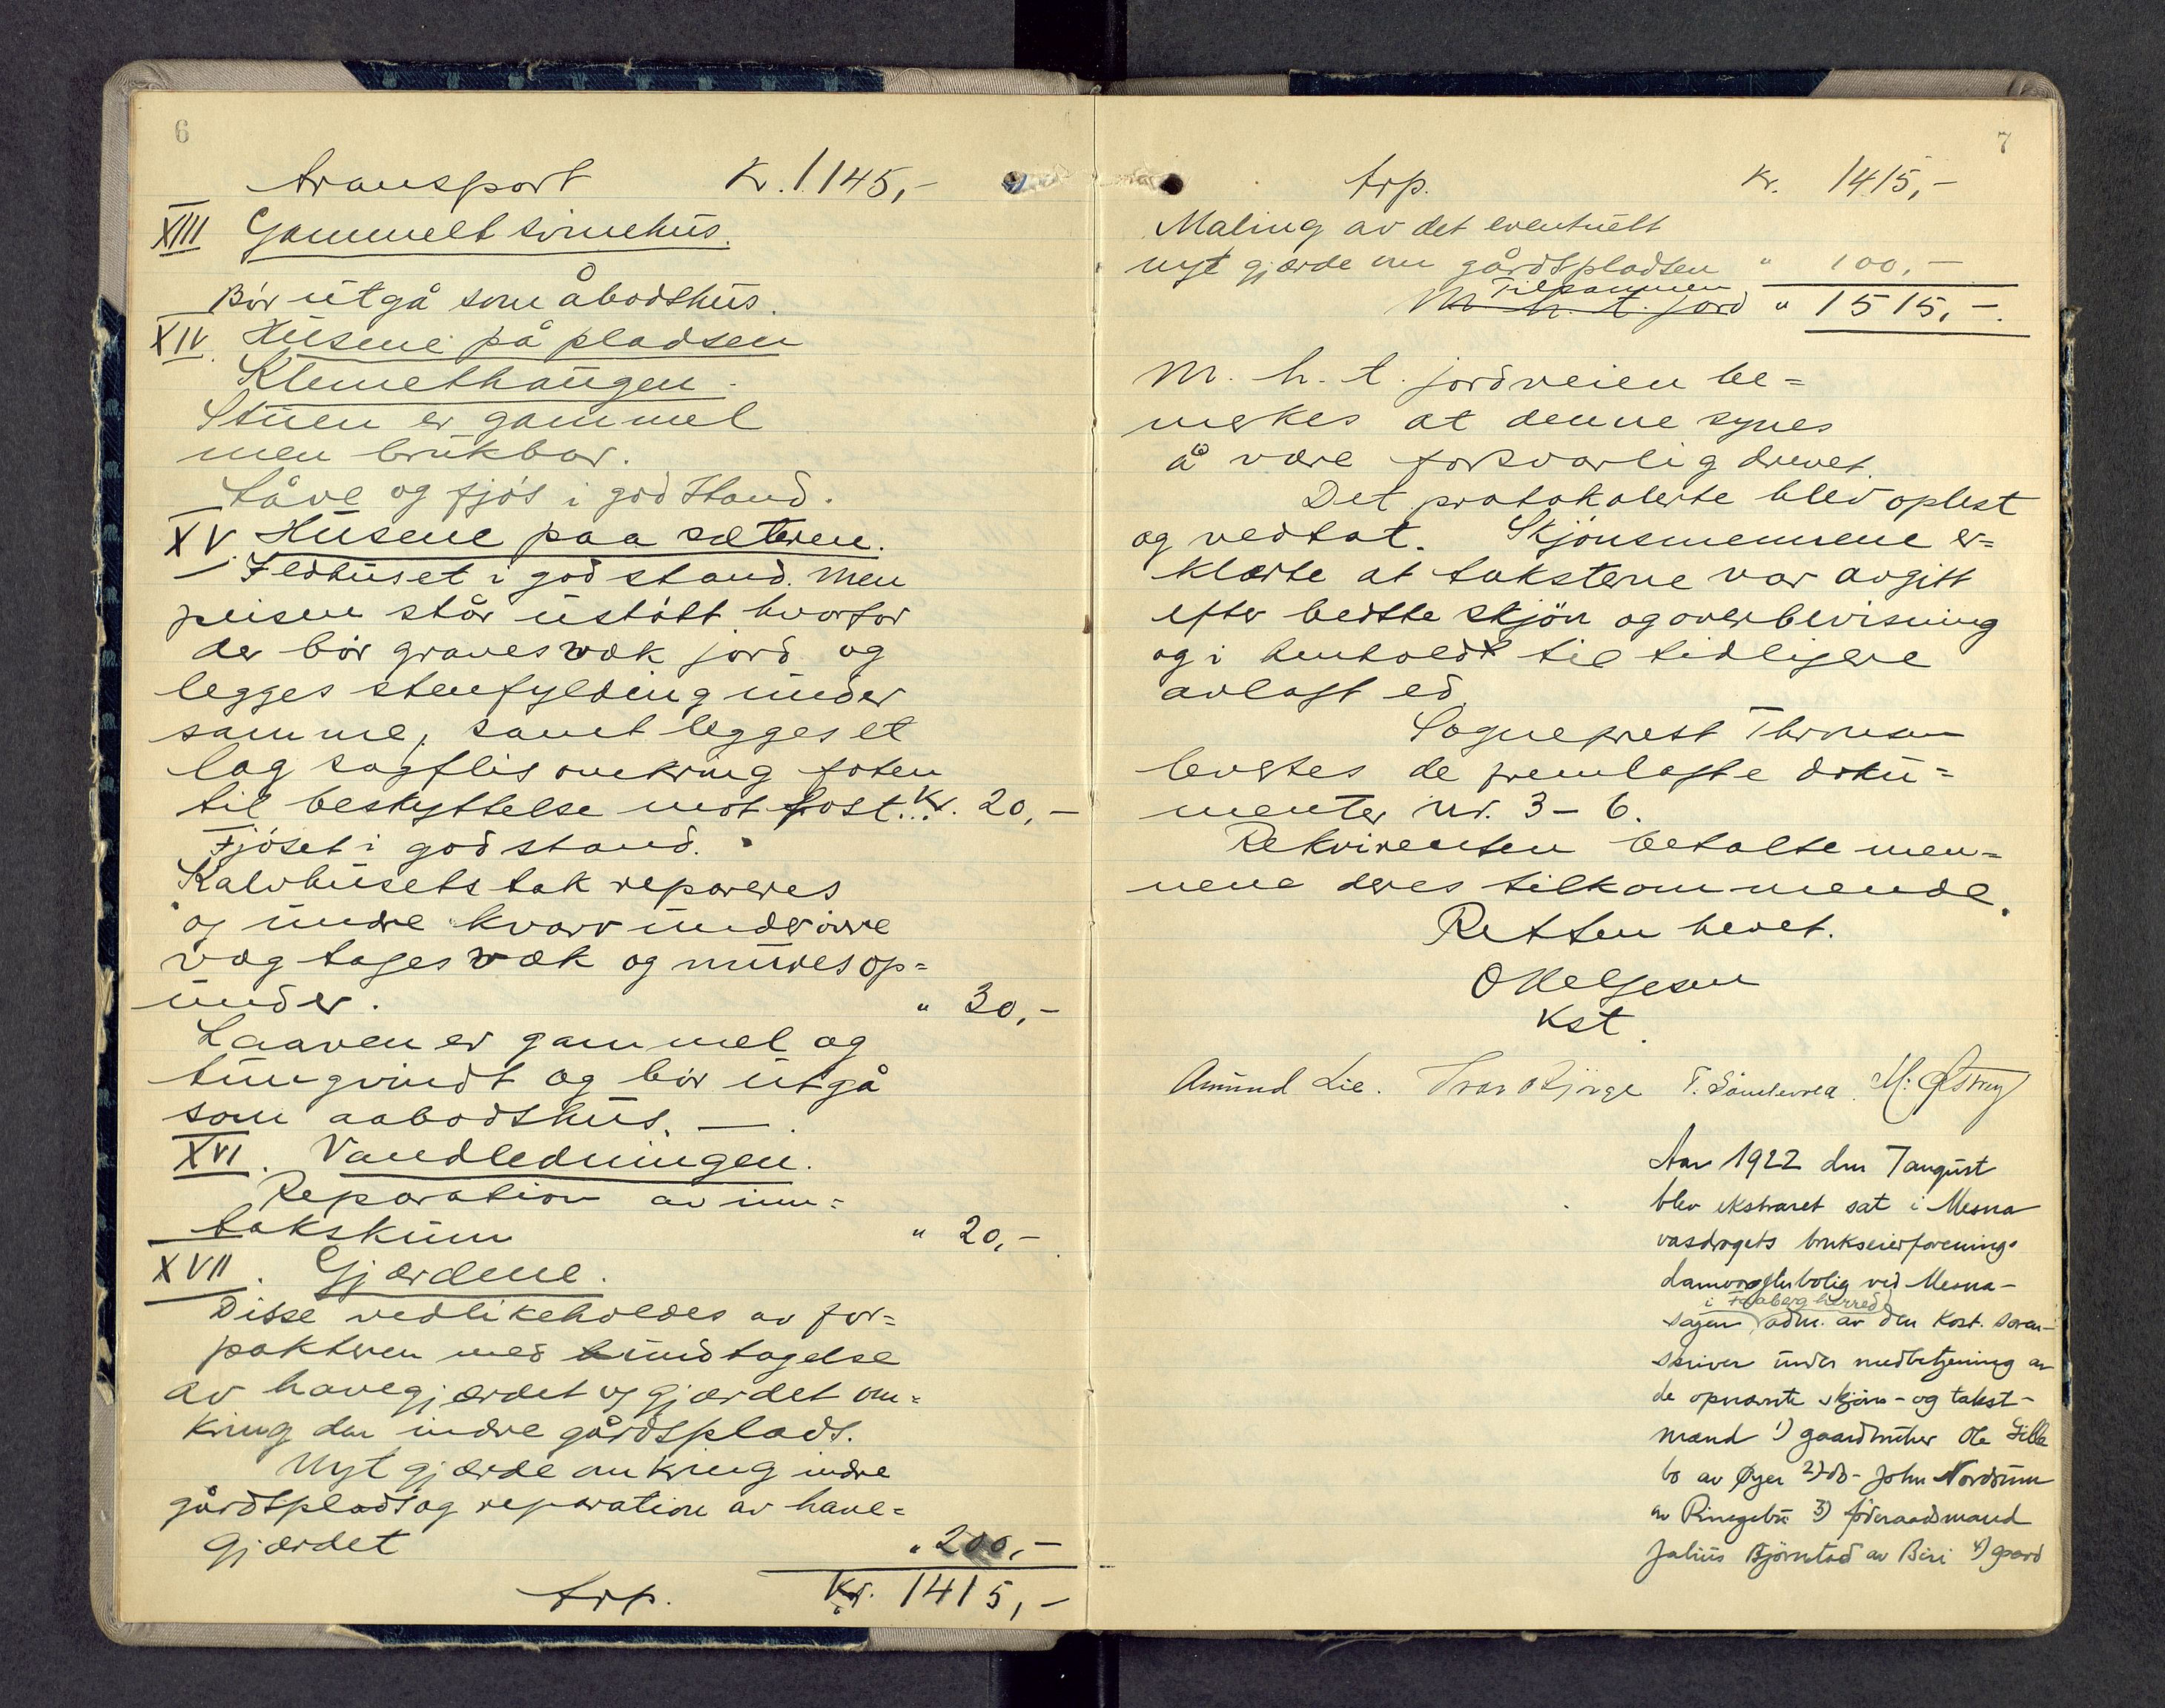 6
transport Kr. 1145,-
XIII Gammelt svinehus.
Bör utgå som åbodshus.
XIV. Husene på pladsen
Klemethaugen.
Stuen er gammel
men brukbar.
Låve og fjös i god stand.
XV. Husene paa sæteren.
Ildhuset i god stand. Men
peisen står ustött hvorfor
der bör graves væk jord og
legges stenfylding under
samme, samt legges et
lag sagflis omkring foten
til beskyttelse mot frost... Kr. 20,-
Fjöset i god stand.
Kalvhusets tak repareres
og undre kvarv under övre
væg tages væk og mures op=
under. " 30,-
Laaven er gammel og
tungvindt og bör utgå
som aabodshus. —
XVI. Vandledningen.
Reparation av inn=
takskum " 20,-
XVII. Gjærdene.
Disse vedlikeholdes av for=
pakteren med undtagelse
av havegjærdet og gjærdet om=
kring den indre gårdsplads.
Nyt gjærde omkring indre
gårdsplads og reparation av have=
gjærdet " 200,-
trp. Kr. 1415,-
7
trp. Kr. 1415,-
Maling av det eventuelt
nyt gjærde om gårdspladsen " 100,-
Tilsammen
M. h. t. jord " 1515,-.
M. h. t. jordveien be=
merkes at denne synes
å være forsvarlig drevet
Det protokolerte blev oplest
og vedtat. Skjönsmennene er=
klærte at taksterne var avgitt
efter bedste skjön og overbevisning
og i henhold til tidligere
avlagt ed.
Sogneprest Thomsen
levertes de fremlagte doku=
menter nr. 3-6.
Rekvirenten betalte men=
nene deres tilkommende.
Retten hevet.
O Helgesen
Kst.
Amund Lie. Ivar Bjørge
Aar 1922 den 7 august
blev ekstraret sat i Mesna
vasdragets brukseierforenings
damvogterbolig ved Mesna-
i Faaberg herred
sagen adm. av den Kost. soren-
skriver under medbetjening av
de opnævnte skjöns- og takst-
mænd 1) gaardbruker Ole Lille
bo av Øyer 2) -do- John Nordrum
av Ringebu 3) föderaadsmand
Julius Björnstad av Biri 4) gaard